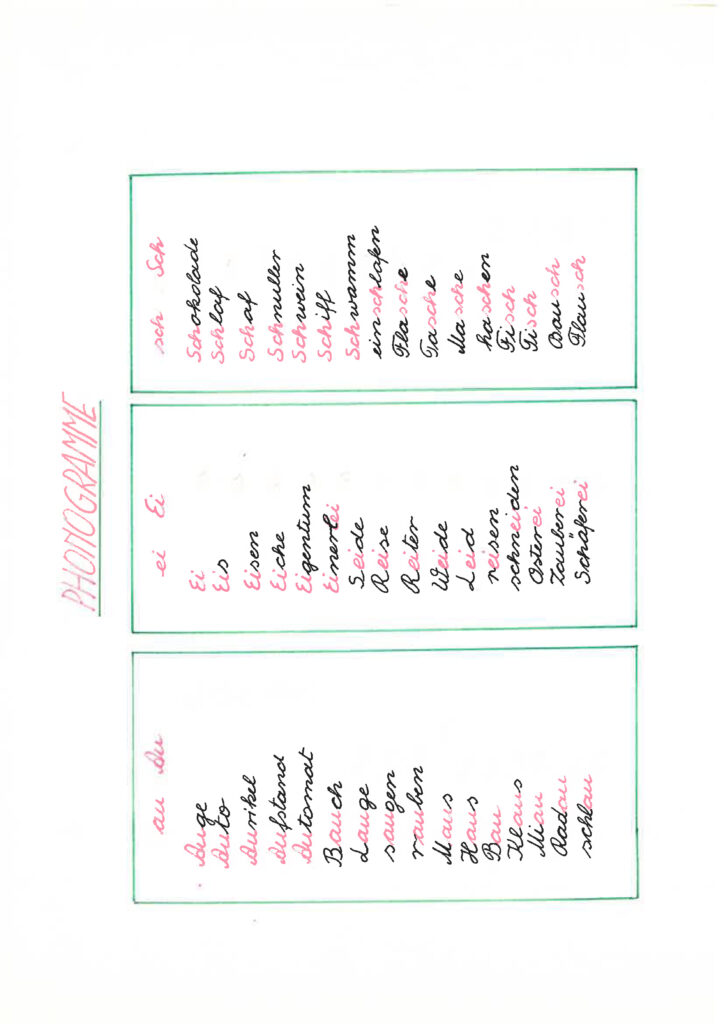 PHONOGRAMME
au Au
Auge
Auto
Aurikel
Aufstand
Automat
Bauch
Lauge
saugen
rauben
Maus
Haus
Bau
Klaus
Miau
Radau
schlau
ei Ei
Ei
Eis
Eisen
Eiche
Eigentum
Einerlei
Seide
Reise
Reiter
Weide
Leid
reisen
schneiden
Osterei
Zauberei
Schäferei
sch Sch
Schokolade
Schlaf
Schaf
Schnuller
Schwein
Schiff
Schwamm
einschlafen
Flasche
Tasche
Masche
haschen
Fisch
Tisch
Bausch
Flausch